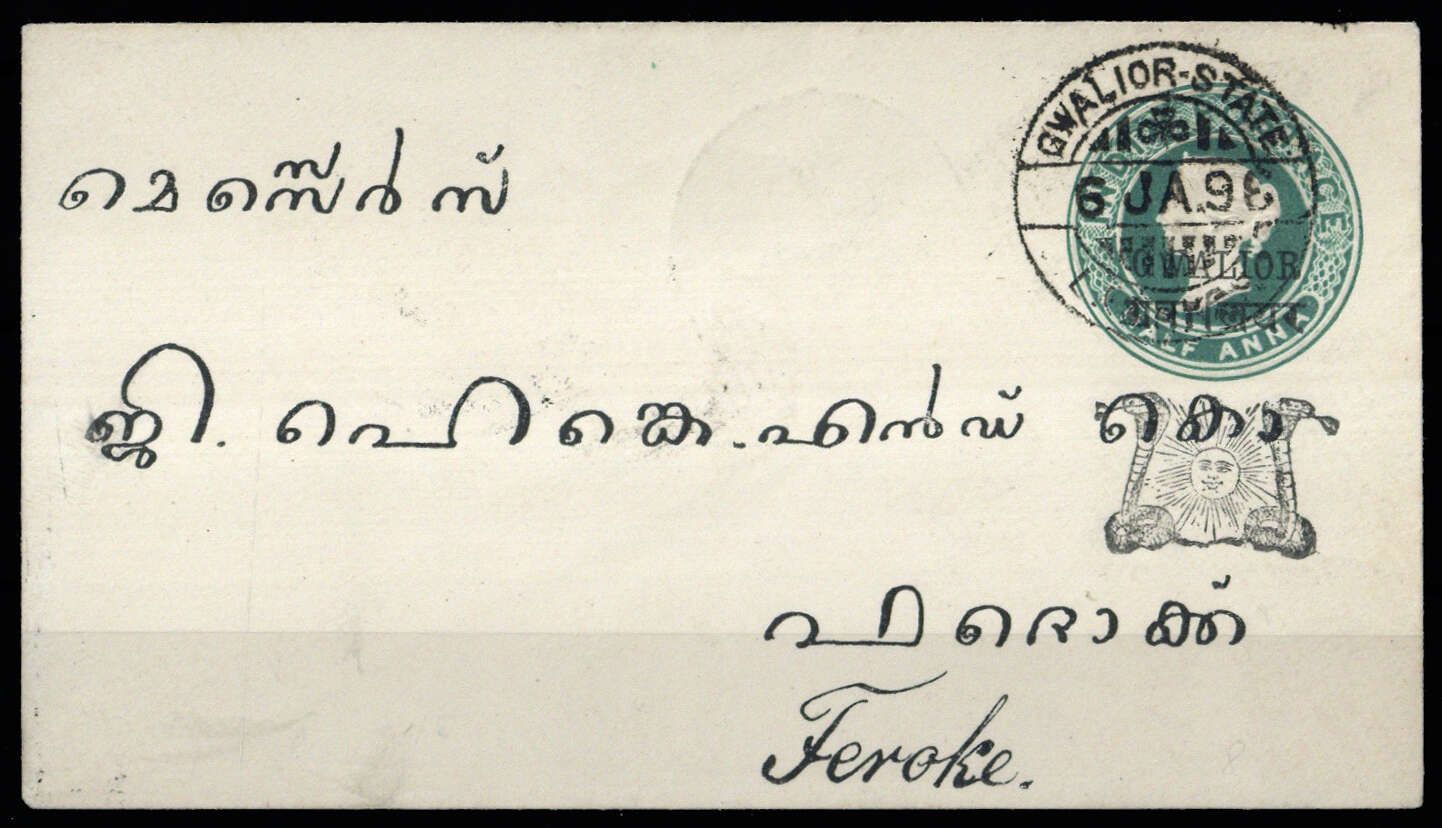 GWALIOR-STATE
6 JA.96
GWALIOR
HALF ANNA
മെസ്സേർസ്
ജി. പെറി കെ. എൻഡ് കൊ
ഫറൊക്ക്
Feroke.